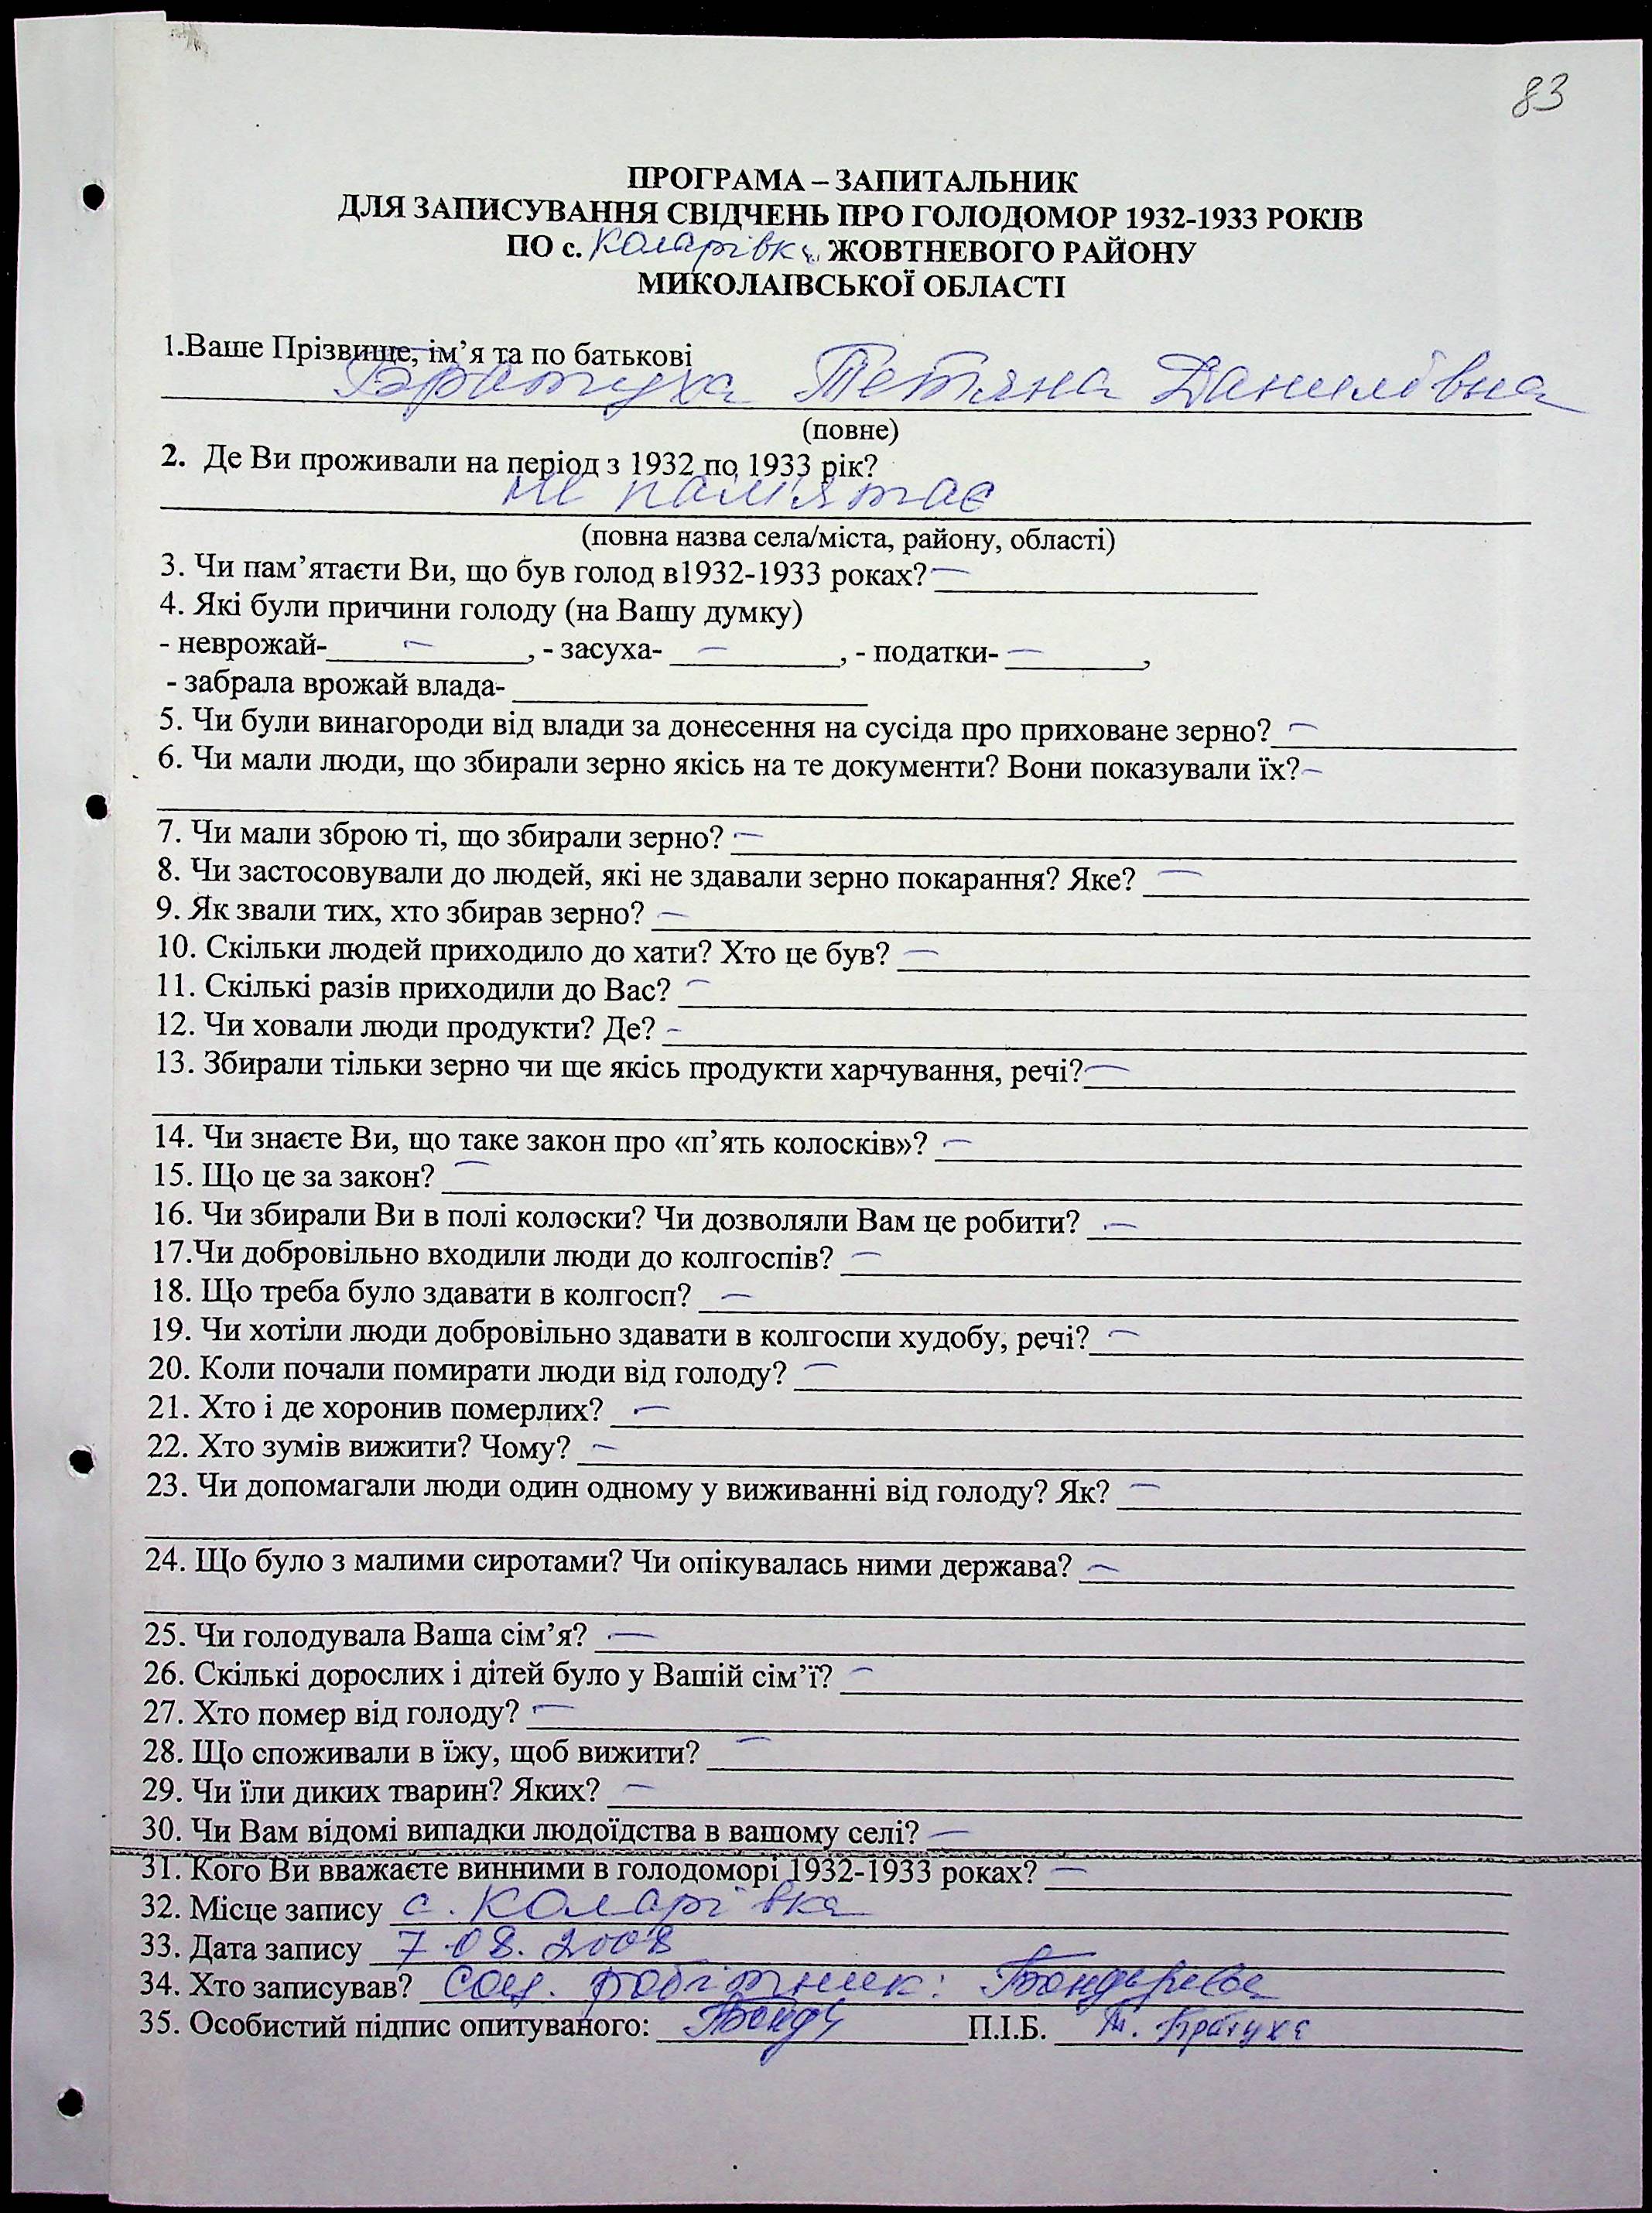 83
ПРОГРАМА – ЗАПИТАЛЬНИК
ДЛЯ ЗАПИСУВАННЯ СВІДЧЕНЬ ПРО ГОЛОДОМОР 1932-1933 РОКІВ
ПО с. Коларівка ЖОВТНЕВОГО РАЙОНУ
МИКОЛАІВСЬКОЇ ОБЛАСТІ
1.Ваше Прізвище, ім’я та по батькові
Братуха Тетяна Данилівна
(повне)
2. Де Ви проживали на період з 1932 по 1933 рік?
не пам'ятає
(повна назва села/міста, району, області)
3. Чи пам’ятаєти Ви, що був голод в1932-1933 роках? —
4. Які були причини голоду (на Вашу думку)
- неврожай- —, - засуха- —, - податки- —,
- забрала врожай влада-
5. Чи були винагороди від влади за донесення на сусіда про приховане зерно? —
6. Чи мали люди, що збирали зерно якісь на те документи? Вони показували їх? —
7. Чи мали зброю ті, що збирали зерно? —
8. Чи застосовували до людей, які не здавали зерно покарання? Яке? —
9. Як звали тих, хто збирав зерно? —
10. Скільки людей приходило до хати? Хто це був? —
11. Скількі разів приходили до Вас? —
12. Чи ховали люди продукти? Де? -
13. Збирали тільки зерно чи ще якісь продукти харчування, речі? —
14. Чи знаєте Ви, що таке закон про «п’ять колосків»? —
15. Що це за закон? —
16. Чи збирали Ви в полі колоски? Чи дозволяли Вам це робити? —
17.Чи добровільно входили люди до колгоспів? —
18. Що треба було здавати в колгосп? —
19. Чи хотіли люди добровільно здавати в колгоспи худобу, речі? —
20. Коли почали помирати люди від голоду? —
21. Хто і де хоронив померлих? —
22. Хто зумів вижити? Чому? —
23. Чи допомагали люди один одному у виживанні від голоду? Як? —
24. Що було з малими сиротами? Чи опікувалась ними держава? —
25. Чи голодувала Ваша сім’я? —
26. Скількі дорослих і дітей було у Вашій сім’ї? —
27. Хто помер від голоду? —
28. Що споживали в їжу, щоб вижити? —
29. Чи їли диких тварин? Яких? —
30. Чи Вам відомі випадки людоїдства в вашому селі? —
31. Кого Ви вважаєте винними в голодоморі 1932-1933 роках? —
32. Місце запису с. Коларівка
33. Дата запису 7.08.2008
34. Хто записував? соц. робітник: Бондарева
35. Особистий підпис опитуваного: П.І.Б. Т. Братуха